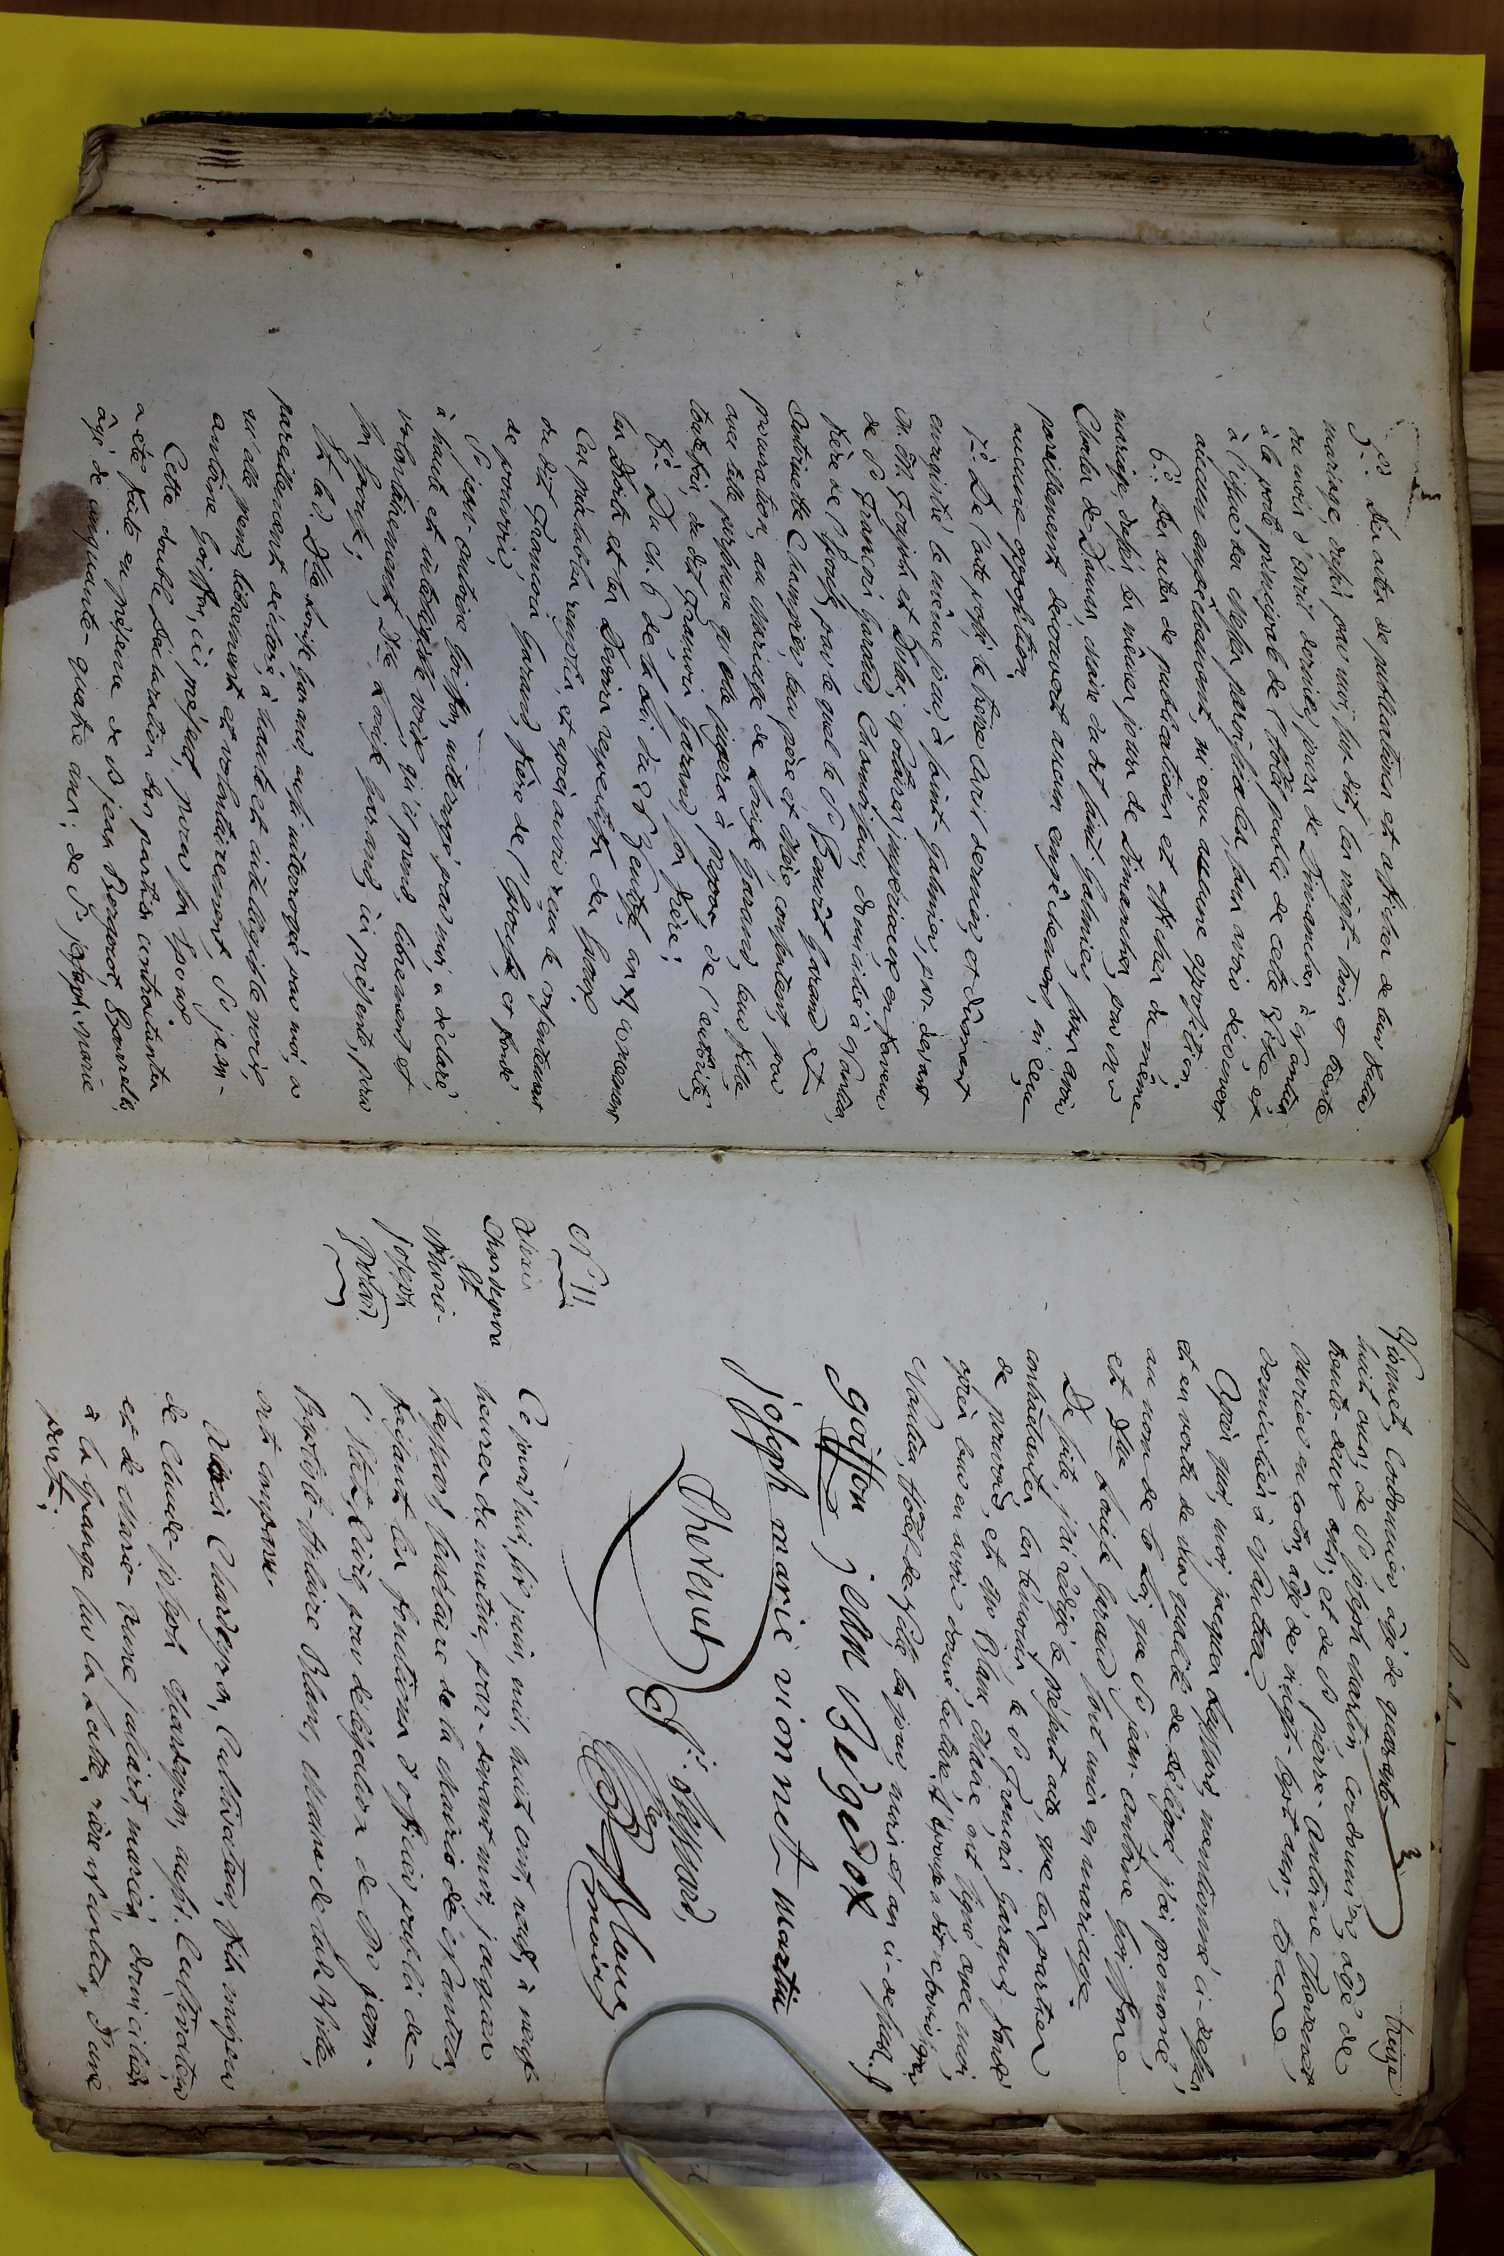 5.° des actes de publications et affiches de leur futur
mariage, dressés par moi, susdit, les vingt-trois et trente
du mois d'avril dernier, jours de Dimanches, à Nantua
à la porte principale de l'hôtel public de cette ville, et
à l'issue des messes paroissiales, sans avoir découvert
aucun empêchement, ni reçu aucune opposition,
6.° des actes de publications et affiches du même
mariage, dressés les mêmes jours de Dimanches, par M.r
maire du dit Saint Galmier, sans avoir
pareillement découvert aucun empêchement, ni reçu
aucune opposition,
7.° De l'acte passé le treize avril dernier, et dûment
enregistré le même jour, à Saint Galmier, par-devant
M. M. et Dulac, notaires impériaux en faveur
de S.r François Garand, domicilié à Nantua,
frère de l'épouse, par lequel le S.r Benoît Garand et
Antoinette Champier, leur père et mère, consentent, par
procuration, au mariage de Louise Garand, leur fille
avec telle personne qu'elle jugera à propos, de l'autorité,
toutefois, du dit François Garand, son frère;
8.° Du ch. 6 de la loi, titre concernant
les droits et les devoirs respectifs des époux
Ces préalables remplis, et après avoir reçu le consentement
du dit François Garand, frère de l'épouse, et fondé
de pouvoir,
S.r jean-antoine Goiffon, interrogé par moi, a déclaré,
à haute et intelligible voix, qu'il prend, librement et
volontairement, D.lle Louise Garand, ici présente, pour
son épouse;
Et la d. D.lle Louise Garand, aussi interrogée par moi, a
pareillement déclaré, à haute et intelligible voix,
qu'elle prend, librement et volontairement, S.r jean-
antoine Goiffon, ici présent, pour son époux
Cette double déclaration des parties contractantes
a été faite en présence de S.r jean Bergerot, Bourrelier,
âgé de cinquante-quatre ans; de S.r joseph-marie
treize
Vionnet, Cordonnier, âgé de quarante
huit ans; de S.r joseph martin, cordonnier, âgé de
trente-deux ans; et de S.r pierre-antoine Thevenet,
ouvrier en coton, âgé de vingt-sept ans; tous
domiciliés à Nantua
Après quoi, moi, jacques Reffard, mentionné ci-dessus
et en vertu de ma qualité de délégué, j'ai prononcé,
au nom de la Loi, que S.r jean-antoine Goiffon
et D.lle Louise Garand sont unis en mariage.
De suite, j'ai rédigé le présent acte, que les parties
contractantes, les témoins, le S.r François Garand fondé
de pouvoir, et M.r Blanc, Maire, ont signé avec moi,
après leur en avoir donné lecture,
Nantua, Hôtel de Ville, les jour, mois et an ci-dessus.
goiffon jean Bergerox
joseph marie vionnet martin
thevenet J. Reffard,
Blanc
maire
N.° 11
Alexis
Chardeyron
et
Marie-
joseph
Ce jourd'hui, six juin, mil, huit cent, neuf, à neuf
heures du matin, par-devant moi, jacques
Reffard, secrétaire de la Mairie de Nantua,
faisant les fonctions d'officier public de
l'état Civil, par délégation de M.r jean-
Baptiste-hilaire Blanc, Maire de ladite Ville,
ont comparu
Alexis Chardeyron, Cultivateur, fils majeur
de Claude-joseph Chardeyron, aussi Cultivateur
et de Marie-anne julliard, mariés, domiciliés
à la Grange sur la Latte, rière Nantua, d'une
part;